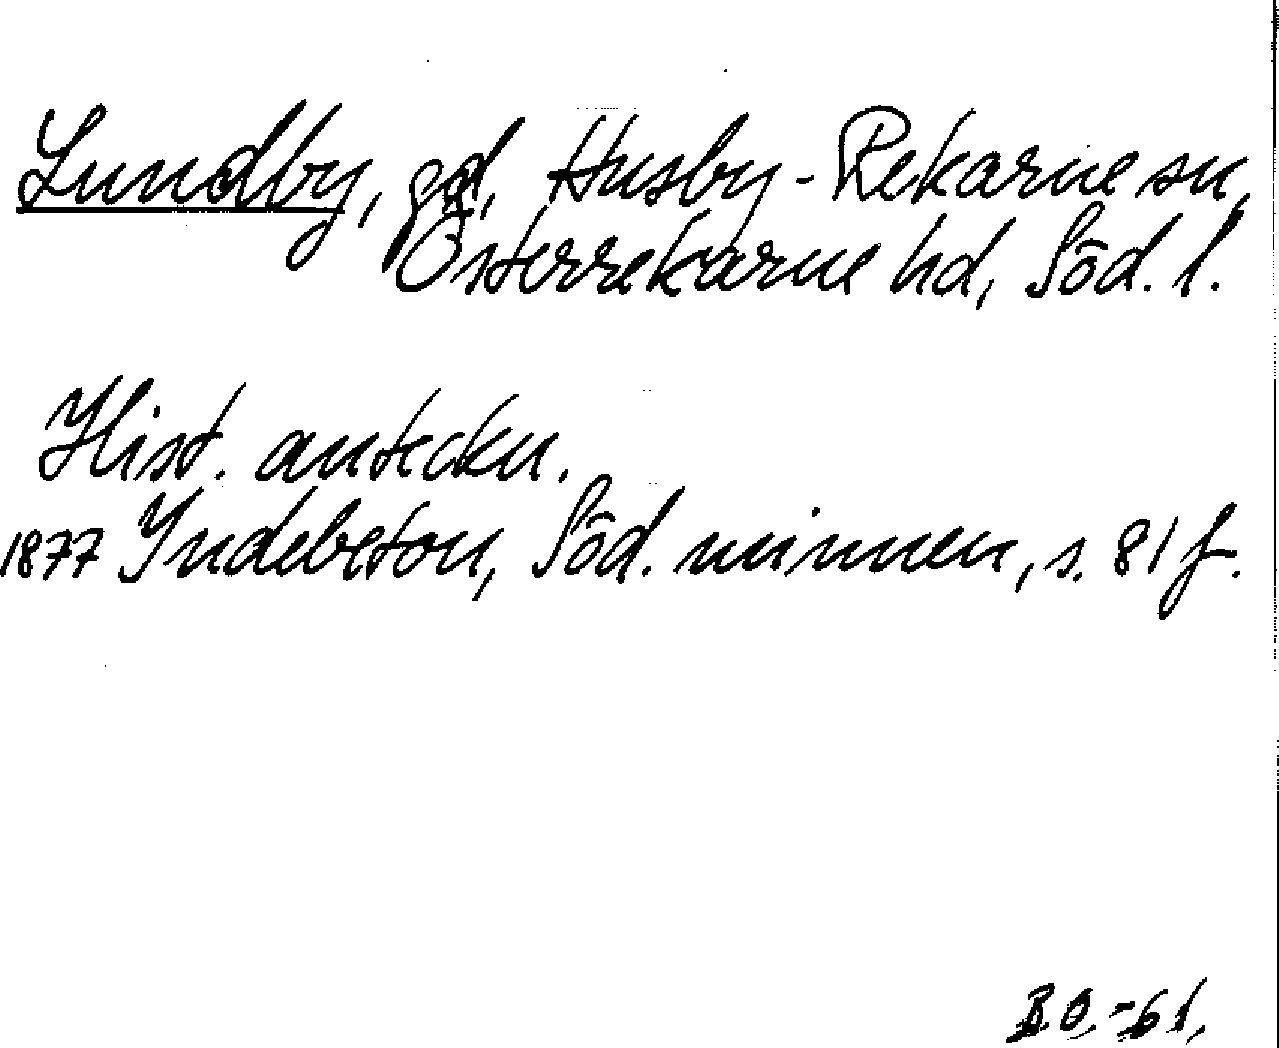 Lundby, gd, Husby-Rekarne sn,
Österrekarne hd, Söd. l.
Hist. anteckn.
1877 Indebetou, Söd. minnen, s. 81 f.
B.O.-61.